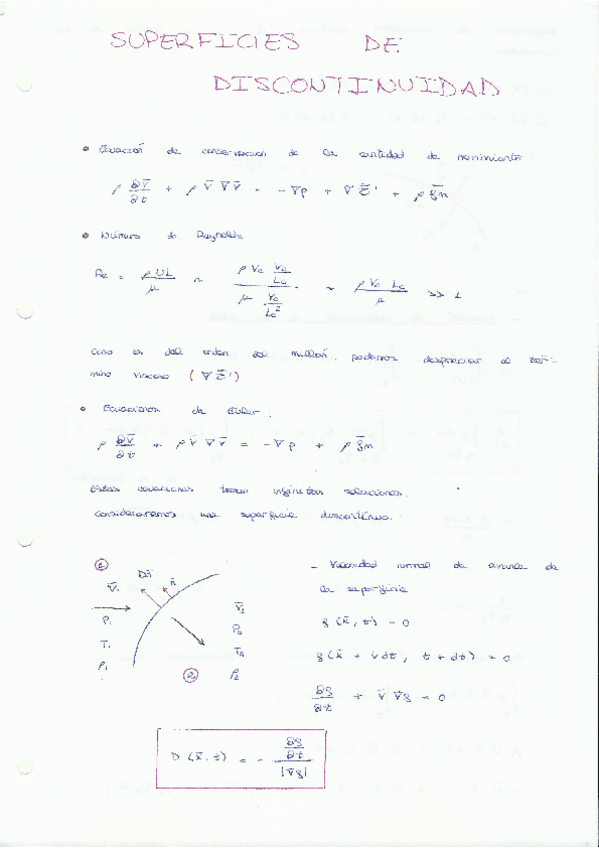 SUPERFICIES DE
DISCONTINUIDAD
• Ecuación de conservación de la cantidad de movimiento
ρ ∂v̄/∂t + ρ v̄ ∇ v̄ = -∇p + ∇ τ̄' + ρ f̄m
• Número de Reynolds
Re = ρUL/μ ~ (ρ Vc Vc/Lc)/(μ Vc/Lc²) ~ ρ Vc Lc/μ >> 1
Como es del orden del millón, podemos despreciar el tér-
mino viscoso (∇ τ̄')
• Ecuaciones de Euler:
ρ ∂v̄/∂t + ρ v̄ ∇ v̄ = -∇p + ρ f̄m
Estas ecuaciones tienen infinitas soluciones.
Consideraremos una superficie discontinua.
① V̄₁ P₁ T₁ ρ₁
Dn̄ n̄
V̄₂ P₂ T₂ ρ₂ ②
- Velocidad normal de avance de
la superficie
f(x̄, t) = 0
f(x̄ + v̄dt, t + dt) = 0
∂f/∂t + v̄ ∇f = 0
D(x̄, t) = - (∂f/∂t)/|∇f|